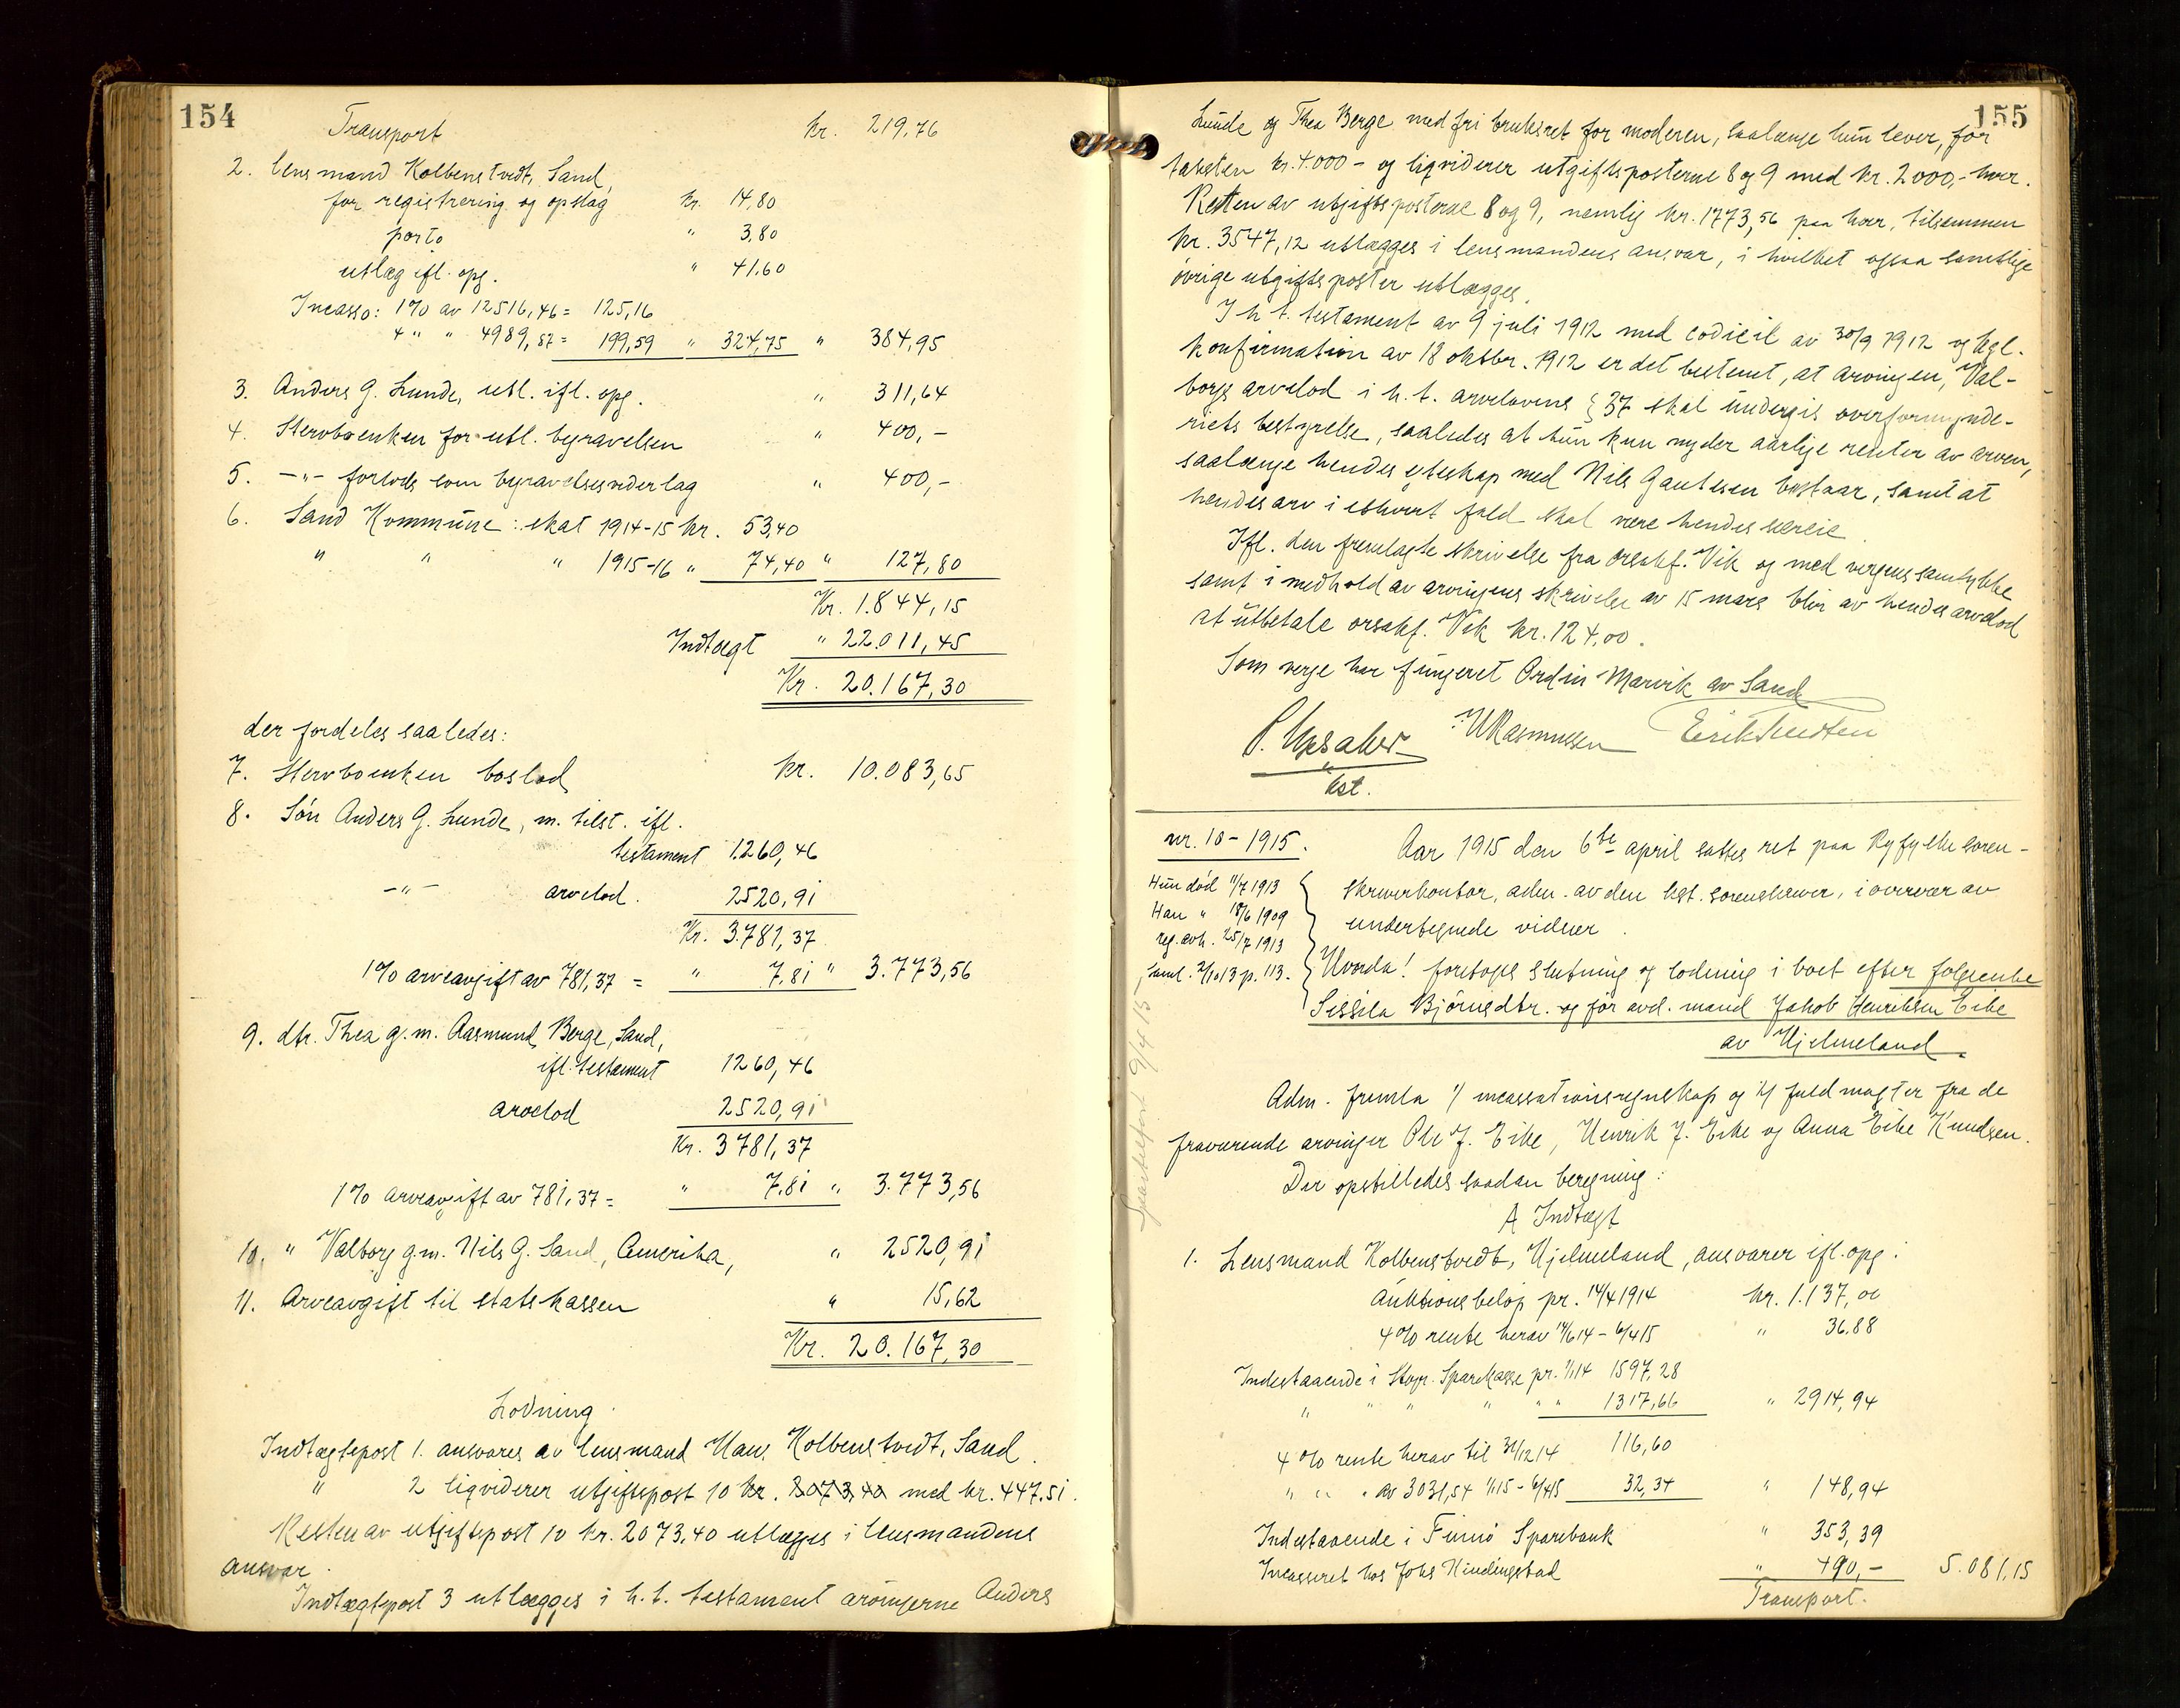 154
Transport kr. 219,76
2. lensmand Kolbenstvedt, Sand,
for registrering og opslag kr. 14,80
porto " 3,80
utlæg ifl. opg. " 41,60
Incasso: 1% av 12516,46 = 125,16
4 " " 4989,87 = 199,59 " 324,75 " 384,95
3. Anders G. Lunde, utl. ifl. opg. " 311,64
4. Stervboenken for utl. begravelsen " 400,-
5. -"- forlods som begravelsesvederlag " 400,-
6. Sand Kommune: skat 1914-15 kr. 53,40
" " " 1915-16 " 74,40 " 127,80
Kr. 1.844,15
Indtægt " 22.011,45
Kr. 20.167,30
der fordeles saaledes:
7. Stervboenken boslod kr. 10.083,65
8. Søn Anders G. Lunde, m. tilst. ifl.
testament 1.260,46
-"- arvelod. 2520,91
Kr. 3.781,37
1% arveavgift av 781,37 = " 7,81 " 3.773,56
9. dtr. Thea g.m. Aasmund Berge, Sand,
ifl. testament 1260,46
arvelod 2520,91
Kr. 3781,37
1% arveavgift av 781,37 = " 7,81 " 3.773,56
10. " Valborg g.m. Nils G. Sand, Amerika, " 2520,91
11. Arveavgift til statskassen " 15,62
Kr. 20.167,30
Lodning.
Indtægtspost 1. ansvares av lensmand Hans Kolbenstvedt, Sand.
" 2 liqviderer utgiftspost 10 kr. 2073,40 med kr. 447,51.
Resten av utgiftspost 10 kr. 2073,40 utlægges i lensmandens
ansvar.
Indtægtspost 3 utlægges i h.t. testament arvingerne Anders
155
Lunde og Thea Berge med fri bruksret for moderen, saalænge hun lever, for
taksten kr. 4.000- og liqviderer utgiftsposterne 8 og 9 med kr. 2000,- hver.
Resten av utgiftsposterne 8 og 9, nemlig kr. 1773,56 paa hver, tilsammen
kr. 3547,12 utlægges i lensmandens ansvar, i hvilket ogsaa samtlige
øvrige utgiftsposter utlægges.
I h.t. testament av 9 juli 1912 med codicil av 30/9 1912 og kgl.
konfirmation av 18 oktbr. 1912 er det bestemt, at arvingen, Val-
borgs arvelod i h.t. arvelovens § 37 skal undergis overformynde-
riets bestyrelse, saaledes at hun kun nyder aarlige renter av arven,
saalænge hendes egteskap med Nils Gautesen bestaar, samt at
hendes arv i ethvert fald skal være hendes særeie.
Ifl. den fremlagte skrivelse fra orsakf. Vik og med vergens samtykke
samt i medhold av arvingens skrivelse av 15 mars blir av hendes arvelod
at utbetale orsakf. Vik kr. 124,00.
Som verge har fungeret Ordin Marvik av Sand
P. Upsaker W Rasmussen Erik Knudsen
kst.
nr. 18 - 1915. Aar 1915 den 6te april sattes ret paa Ryfylke soren-
Hun død 11/7 1913 skriverkontor, adm. av den kst. sorenskriver, i overvær av
Han " 18/6 1909 undertegnede vidner.
reg. avh. 25/7 1913
Saml. 2/10 13 p. 113. Hvorda! foretoges slutning og lodning i boet efter folgeenke
Sissila Bjørnsdtr. og før avd. mand Jakob Henriksen Eike
av Hjelmeland.
Adm. fremla 1/ incassationsregnskap og 2/ fuldmagter fra de
fraværende arvinger Ole J. Eike, Henrik J. Eike og Anna Eike Knudsen.
Der opstilledes saadan beregning:
A Indtægt
1. Lensmand Kolbenstvedt, Hjelmeland, ansvarer ifl. opg:
Auktionsbeløp pr. 14/4 1914 kr. 1.137,01
4% rente herav 14/6 14 - 6/4 15 " 36,88
Indestaaende i Stvgr. Sparekasse pr. 1/1 14 1597,28
" " " " " " 1317,66 " 2914,94
4% rente herav til 31/12 14 116,60
" " " av 3031,54 1/1 15 - 6/4 15 32,34 " 148,94
Indestaaende i Finnø Sparebank " 353,39
Incasseret hos Johs Hindingstad " 490,- 5.081,15
Transport.